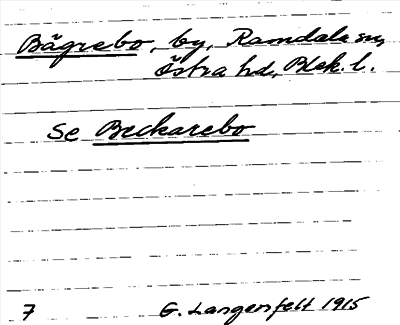 Bägrebo, by, Ramdala sn,
Östra hd, Blek. l.
Se Beckarebo
7 G. Langenfelt 1915